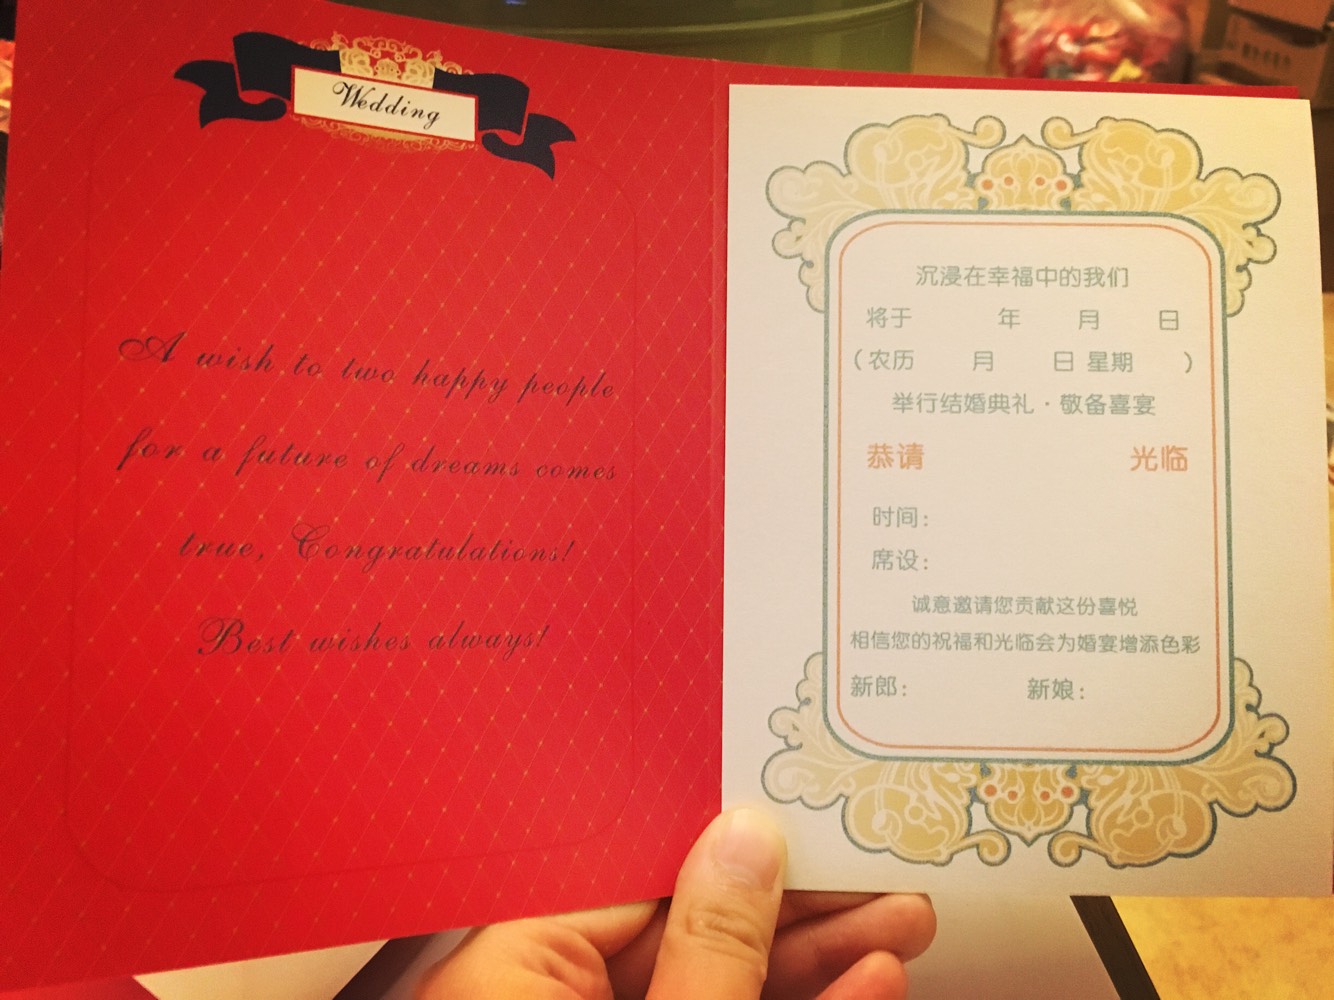 Wedding
A wish to two happy people
for a future of dreams comes
true, Congratulations!
Best wishes always!
沉浸在幸福中的我们
将于 年 月 日
（农历 月 日 星期 ）
举行结婚典礼·敬备喜宴
恭请 光临
时间：
席设：
诚意邀请您贡献这份喜悦
相信您的祝福和光临会为婚宴增添色彩
新郎： 新娘：